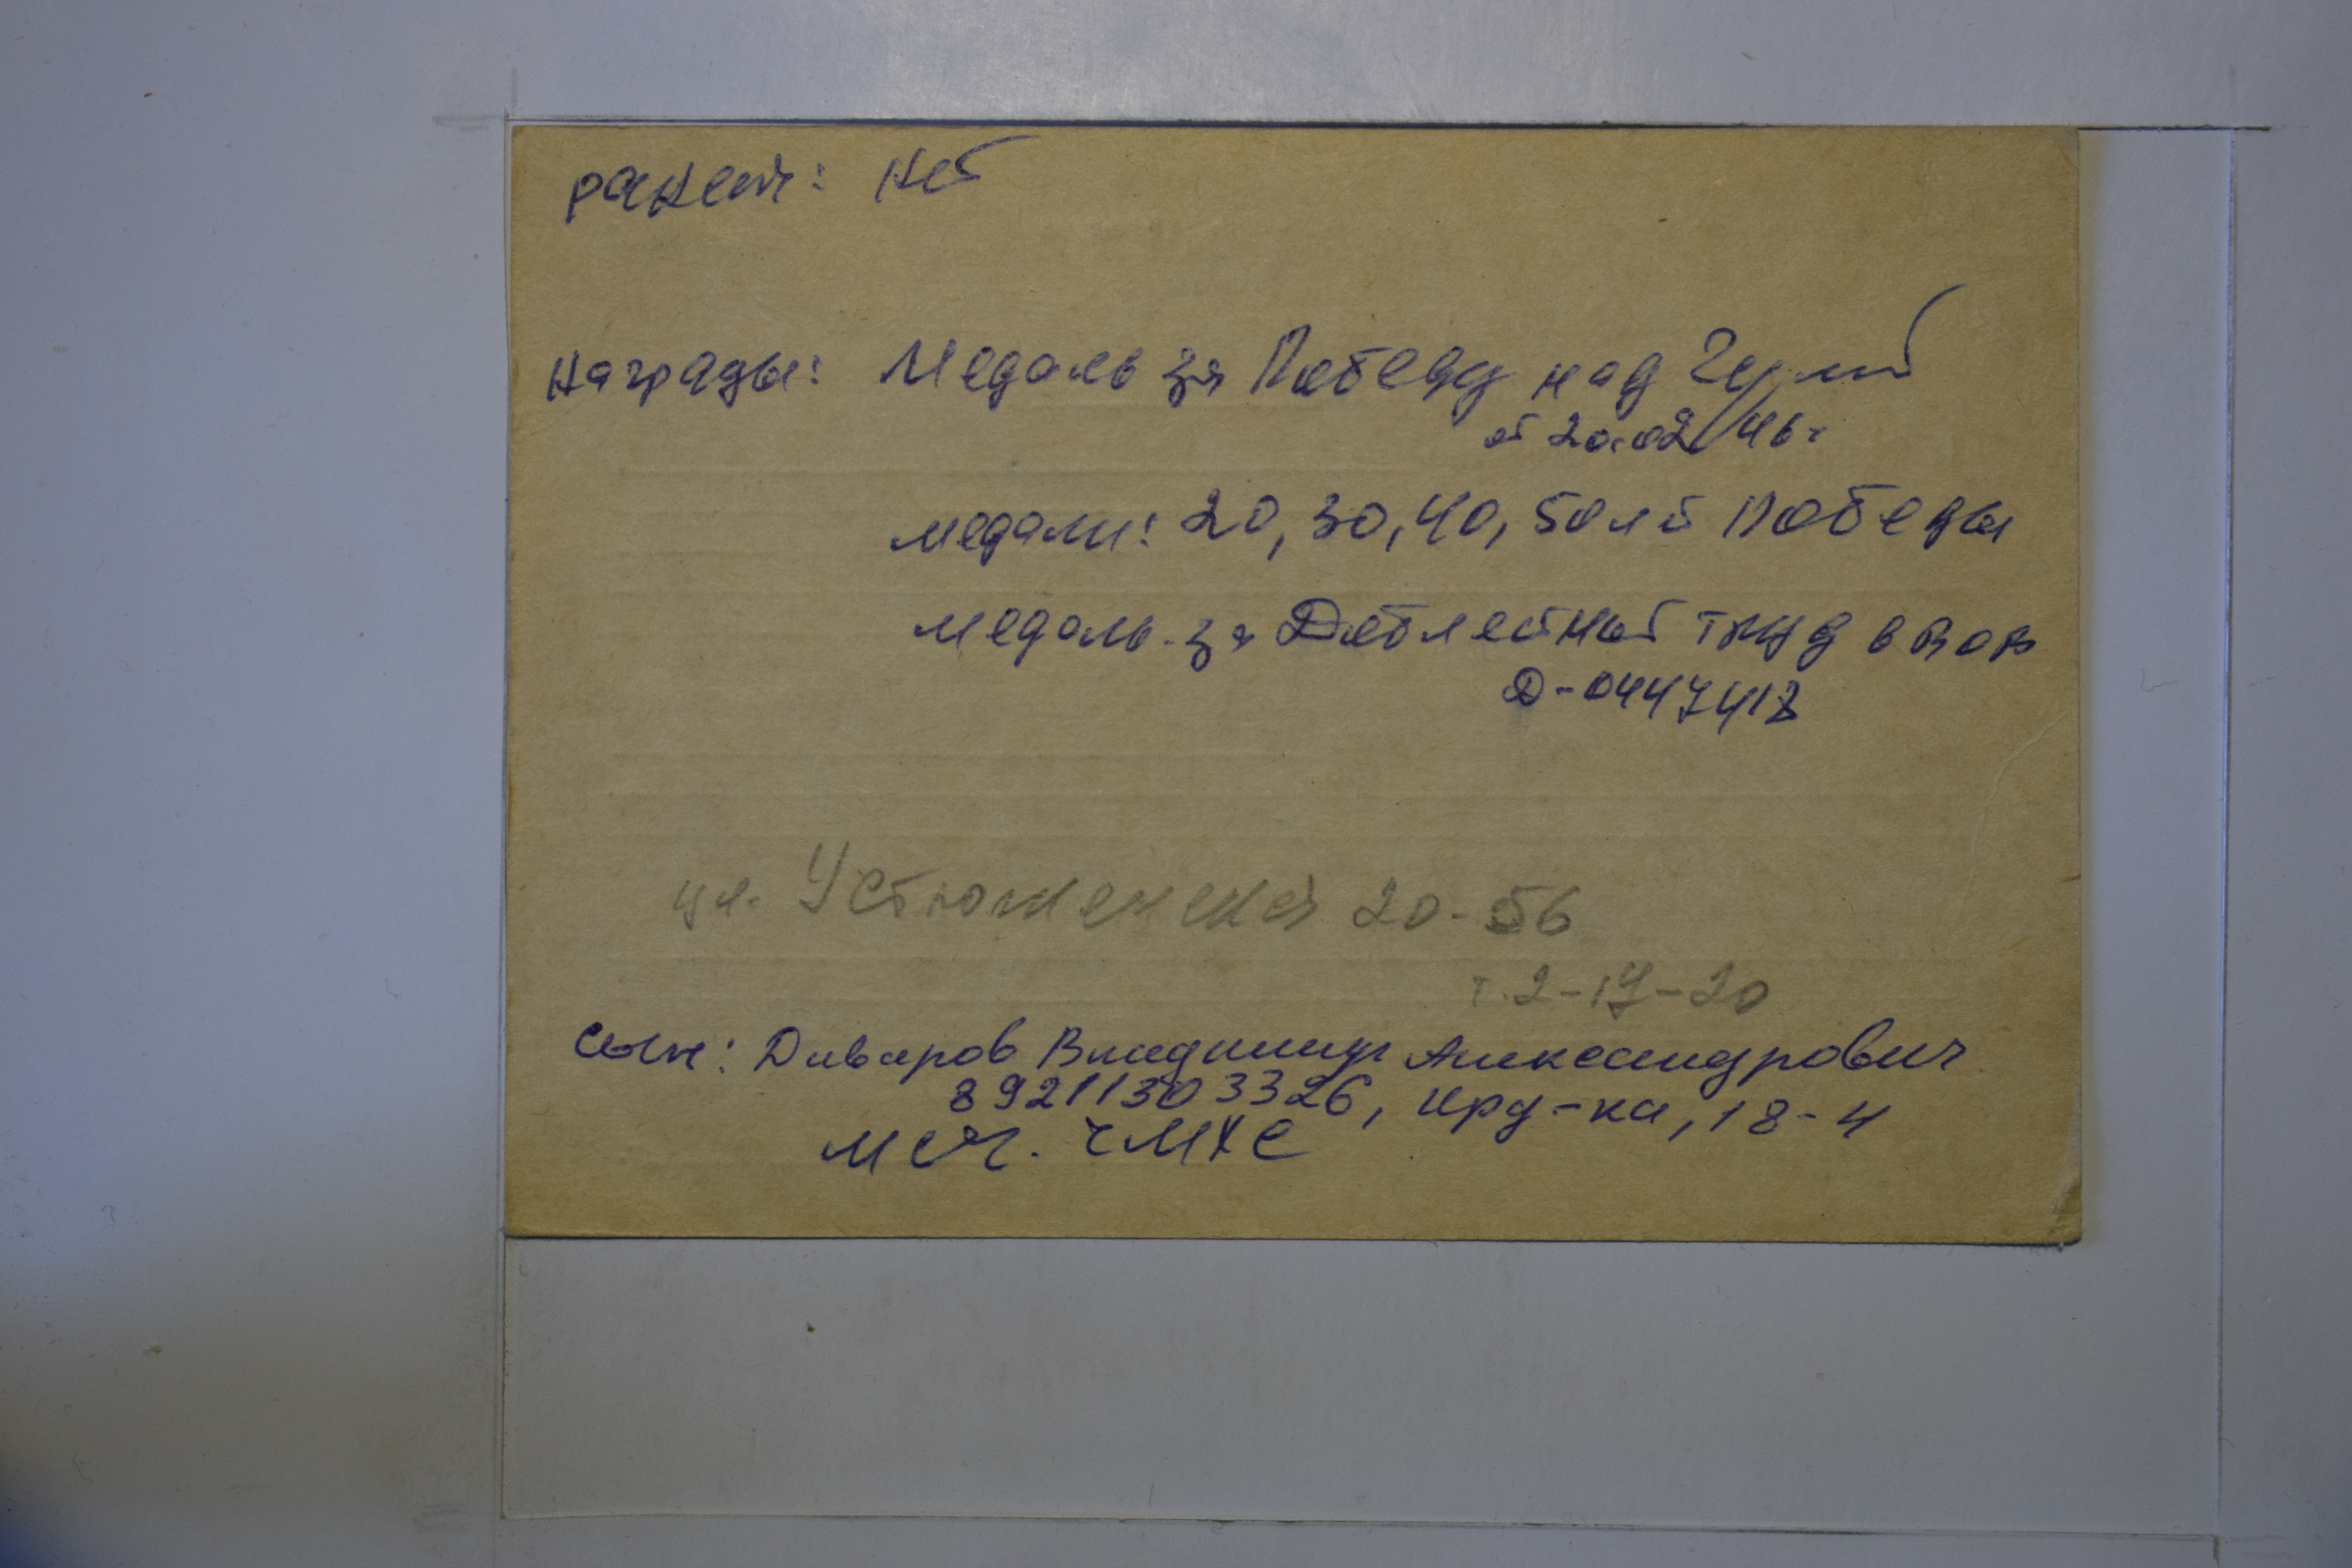 ранен: нет
Награды: Медаль за Победу над Герм
от 20.02.46г
медали: 20, 30, 40, 50 лет Победы
медаль за Доблестный труд в ВОВ
Д-0447418
ул. Устюженская 20-56
т. 2-17-20
Сын: Диваров Владимир Александрович
89211303326, Крд-ка, 18-4